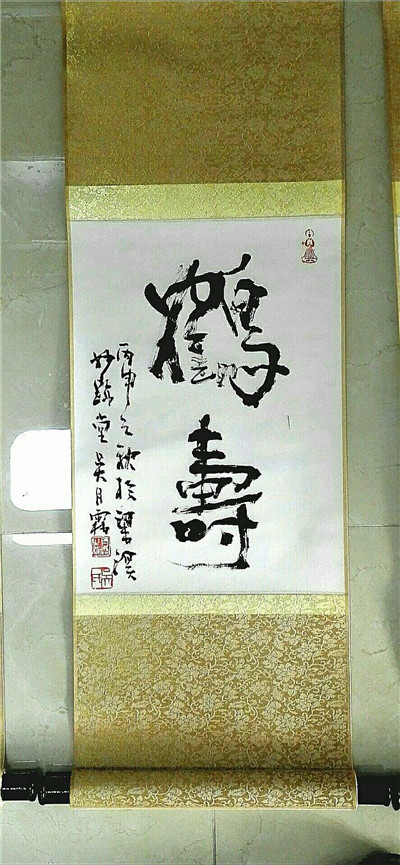 鶴壽
丙申之秋於梁溪
妙路堂吴月霖